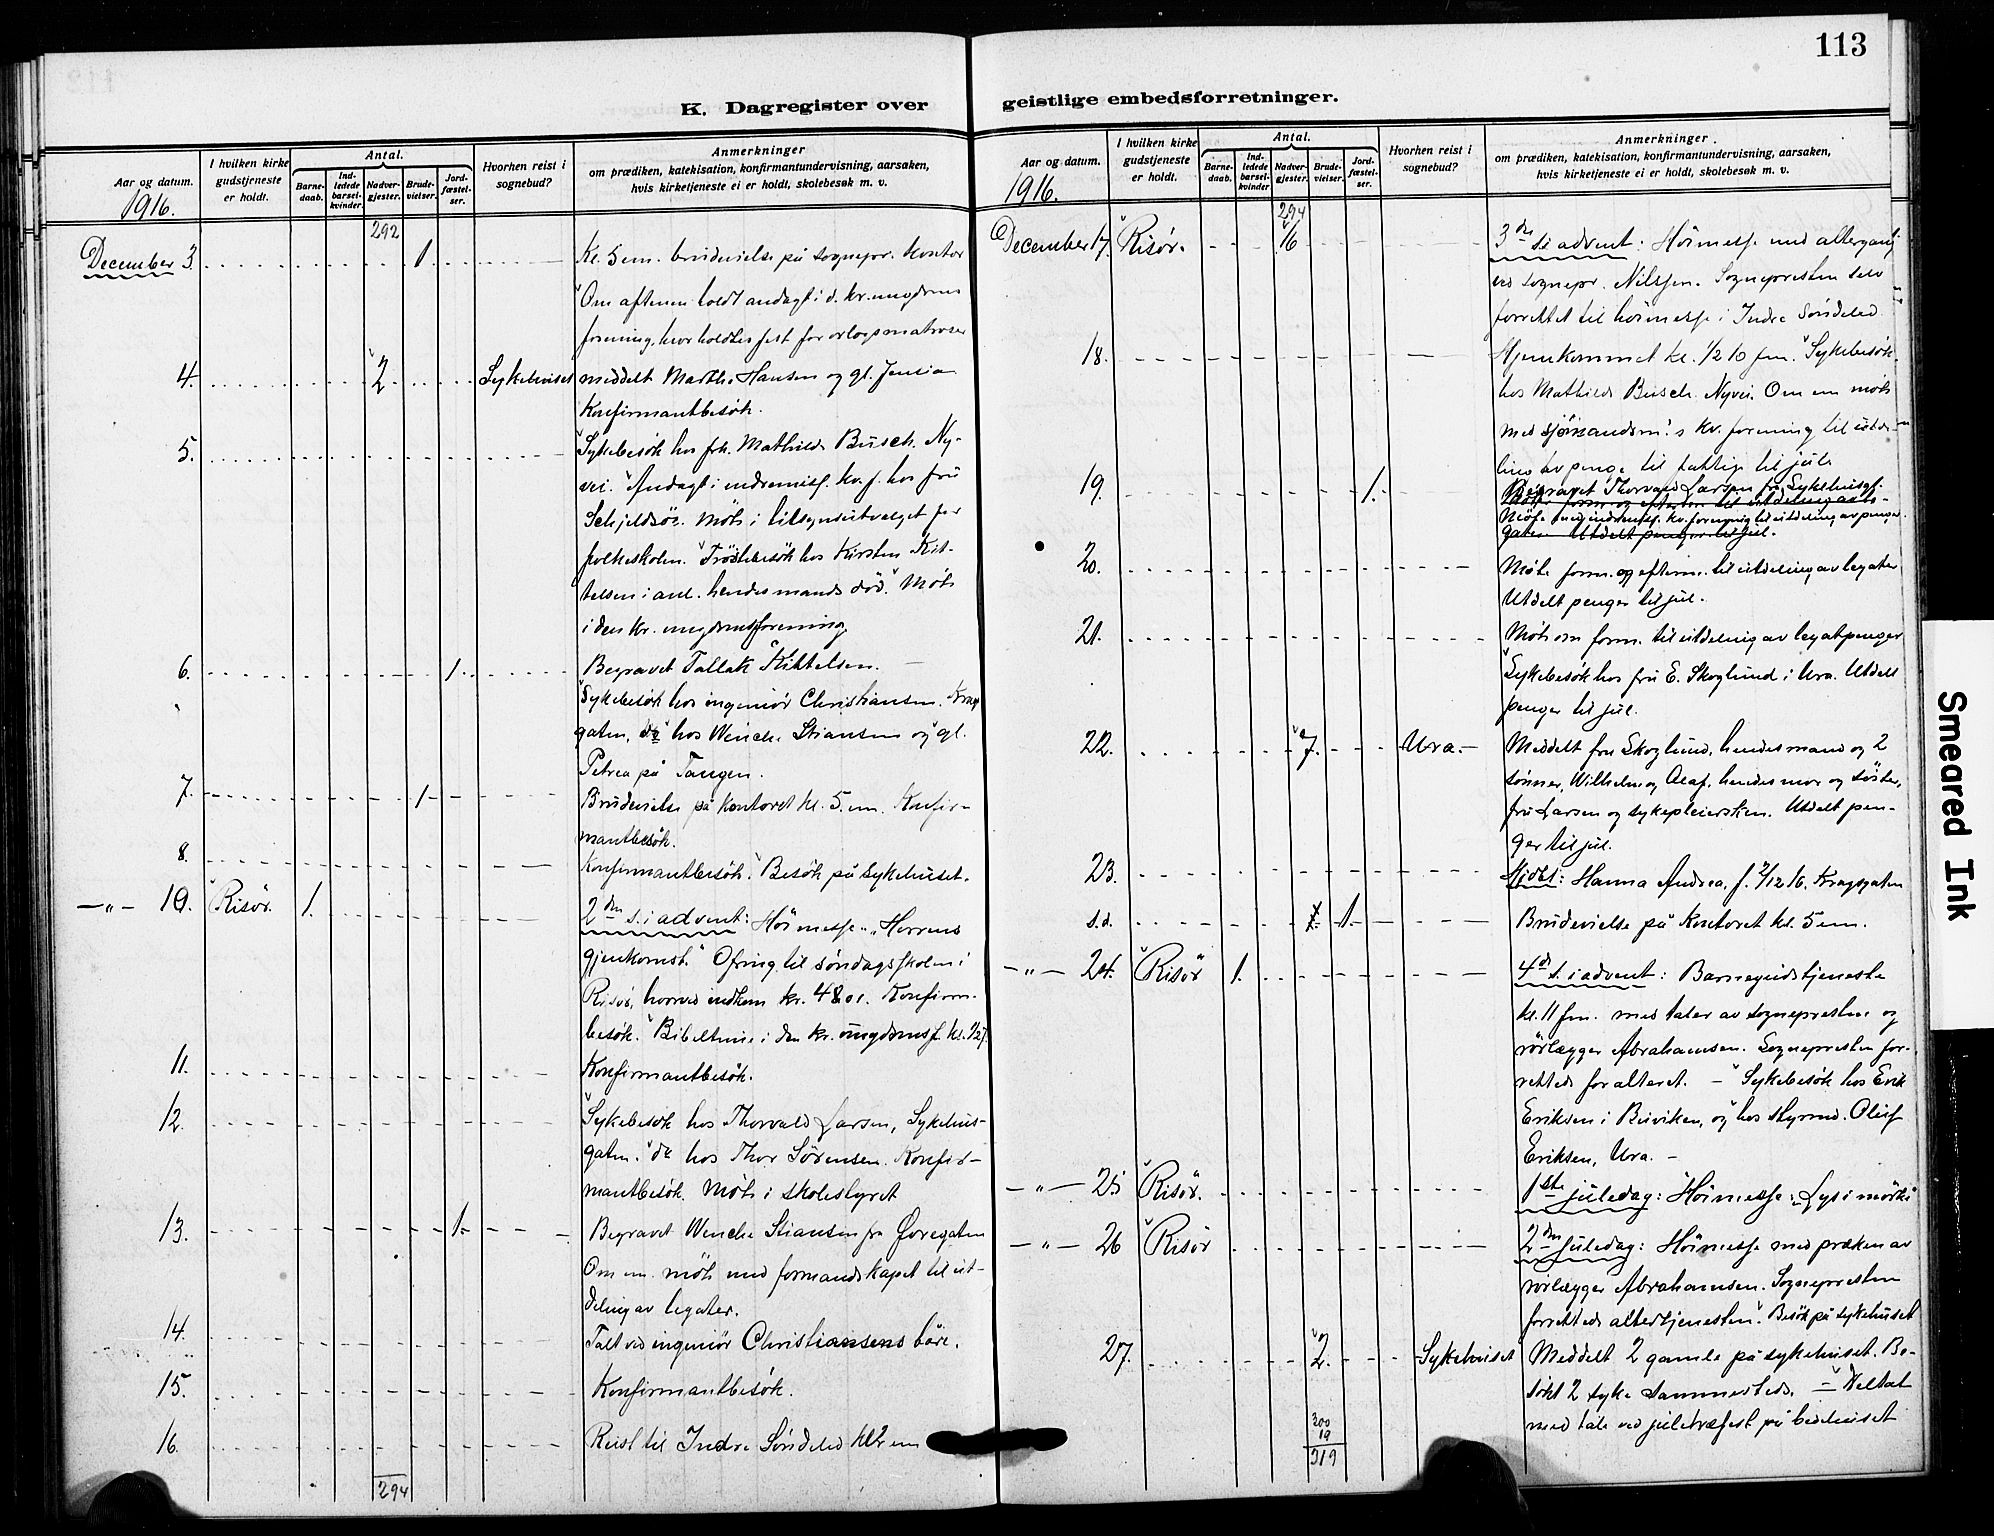 113
K. Dagregister over
Aar og datum.
1916.
I hvilken kirke gudstjeneste er holdt.
Antal.
Barne-daab.
Ind-ledede barsel-kvinder.
Nadver-gjester.
Brude-vielser.
Jord-fæstel-ser.
Hvorhen reist i sognebud?
Anmerkninger
om prædiken, katekisation, konfirmantundervisning, aarsaken,
hvis kirketjeneste ei er holdt, skolebesøk m. v.
292
December 3. 1 Kl. 5 em. brudevielse på sognepr. kontor
Om aftenen holdt andagt i d. kr. ungdoms
forening, hvor holdtes fest for orlogsmatroser
4. 2 Sykehuset meddelt Marthe Hansen og gl. Jensia
Konfirmantbesök.
5. Sykebesök hos frk. Mathilde Busch. Ny-
vei. Andagt i indremisj. kv. f. hos fru
Schjeldsöe. Möte i tilsynsutvalget for
folkeskolen. Tröstebesök hos Kirsten Kit-
telsen i anl. hendes mands död. Möte
i den kr. ungdomsforening
6. 1. Begravet Tallak Kittelsen.
Sykebesök hos ingeniör Christiansen. Krag
gaten, do hos Wenche Stiansen og gl.
Petrea på Tangen.
7. 1 Brudevielse på kontoret kl. 5 em. Konfir-
mantbesök.
8. Konfirmantbesök. Besök på sykehuset.
—"— 10. Risör. 1. 2den s. i advent: Höimesse "Herrens
gjenkomst." Ofring til söndagsskolen i
Risör, hvorved indkom kr. 48.01. Konfirm.
besök. Bibeltime i den kr. ungdomsf. kl. 1/2 7.
11. Konfirmantbesök.
12. Sykebesök hos Thorvald Larsen, Sykehus-
gaten. do hos Thor Sörensen. Konfir-
mantbesök. Möte i skolestyret
13. 1. Begravet Wenche Stiansen fra Øvregaten
Om em. möte med formandskapet til ut-
deling av legater.
14. Talt ved ingeniör Christiansens båre.
15. Konfirmantbesök.
16. Reist til Indre Söndeled kl. 2 em
294
geistlige embedsforretninger.
Aar og datum.
1916.
I hvilken kirke gudstjeneste er holdt.
Antal.
Barne-daab.
Ind-ledede barsel-kvinder.
Nadver-gjester.
Brude-vielser.
Jord-fæstel-ser.
Hvorhen reist i sognebud?
Anmerkninger.
om prædiken, katekisation, konfirmantundervisning, aarsaken,
hvis kirketjeneste ei er holdt, skolebesøk m. v.
294
December 17. Risör. 16 3die s. i advent: Höimesse med altergang
ved sognepr. Nilssen. Sognepresten selv
forrettet til höimesse i Indre Söndeled
18. Hjemkommet kl. 1/2 10 fm. Sykebesök
hos Mathilde Busch. Nyvei. Om em möte
med sjömandsm.'s kv. forening til utde-
ling av penge til fattige til jul.
19. 1. Begravet Thorvald Larsen fra Sykehusgt.
Möte med indremisj. kv. forening til utdeling av penger
20. Möte form. og efterm. til utdeling av legater
Utdelt penger til jul.
21. Möte om form. til utdeling av legatpenger
Sykebesök hos fru E. Skoglund i Ura. Utdelt
penger til jul.
22. 7. Ura. Meddelt fru Skoglund, hendes mand og 2
sönner, Wilhelm og Olaf, hendes mor og söster,
fru Larsen og sykepleiersken. Utdelt pen-
ger til jul.
23. Hjdbt: Hanna Andrea, f. 2/12 16. Kragsgaten
s.d. 1. Brudevielse på kontoret kl. 5 em.
—"— 24. Risör 1. 4de s. i advent: Barnegudstjeneste
kl. 11 fm. med taler av sognepresten og
rörlægger Abrahamsen. Sognepresten for-
rettede for alteret. — Sykebesök hos Erik
Eriksen i Buviken, og hos styrmd. Oluf
Eriksen, Ura. —
—"— 25 Risör. 1ste juledag: Höimesse: "Lys i mörke"
—"— 26 Risör 2den juledag: Höimesse med præken av
rörlægger Abrahamsen. Sognepresten
forrettede altertjenesten. Besök på sykehuset
27. 2. Sykehuset Meddelt 2 gamle på sykehuset. Be-
sökt 2 syke sammesteds. — Deltat
med tale ved juletræfest på bedehuset
300
19
319
Smeared Ink